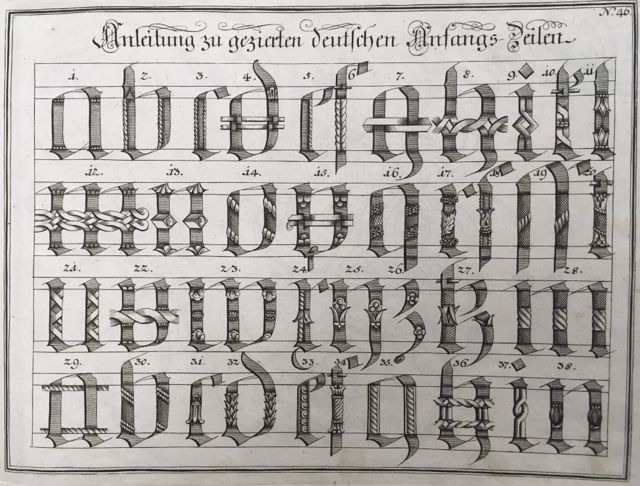 N.º 46
Anleitung zu gezierten deutschen Anfangs-Zeilen
1. 2. 3. 4. 5. 6 7. 8. 9. 10. 11
a b c d e f g h i k l
12. 13. 14. 15. 16. 17. 18. 19. 20.
m n o p q r t
21. 22. 23. 24. 25. 26. 27. 28.
u v w x y z n
29. 30. 31. 32. 33. 34. 35. 36. 37. 38.
a b c d e f g h i n